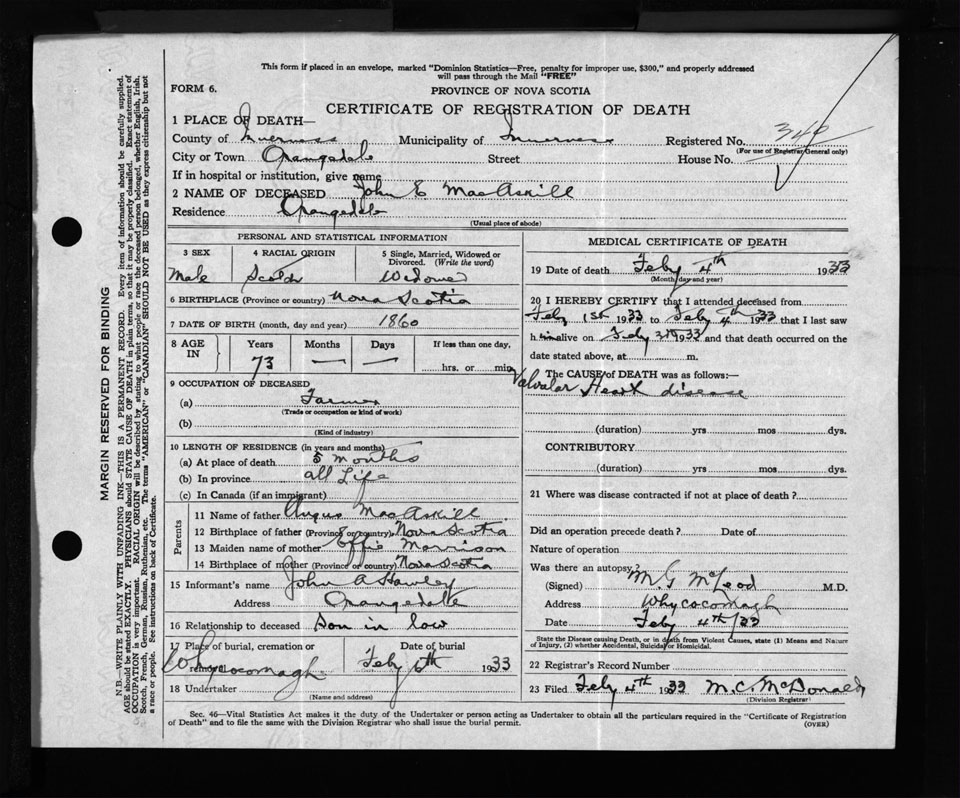 This form if placed in an envelope, marked "Dominion Statistics—Free, penalty for improper use, $300," and properly addressed
will pass through the Mail "FREE"
FORM 6.
PROVINCE OF NOVA SCOTIA
CERTIFICATE OF REGISTRATION OF DEATH
1 PLACE OF DEATH—
County of Inverness Municipality of Inverness Registered No. 340
(For use of Registrar General only)
City or Town Orangedale Street House No.
If in hospital or institution, give name
2 NAME OF DECEASED John E MacAskill
Residence Orangedale
(Usual place of abode)
PERSONAL AND STATISTICAL INFORMATION
3 SEX 4 RACIAL ORIGIN 5 Single, Married, Widowed or Divorced. (Write the word)
Male Scotch Widower
6 BIRTHPLACE (Province or country) Nova Scotia
7 DATE OF BIRTH (month, day and year) 1860
8 AGE IN Years Months Days If less than one day,
73 — — hrs. or min.
9 OCCUPATION OF DECEASED
(a) Farmer
(Trade or occupation or kind of work)
(b)
(Kind of industry)
10 LENGTH OF RESIDENCE (in years and months)
(a) At place of death 5 months
(b) In province all Life
(c) In Canada (if an immigrant)
Parents
11 Name of father Angus MacAskill
12 Birthplace of father (Province or country) Nova Scotia
13 Maiden name of mother Effie Morrison
14 Birthplace of mother (Province or country) Nova Scotia
15 Informant's name John A Hawley
Address Orangedale
16 Relationship to deceased Son in low
17 Place of burial, cremation or removal Date of burial
Whycocomagh Feby 6th 1933
18 Undertaker
(Name and address)
MEDICAL CERTIFICATE OF DEATH
19 Date of death Feby 4th 1933
(Month, day and year)
20 I HEREBY CERTIFY that I attended deceased from
Feby 1st 1933 to Feby 4th 1933 that I last saw
h im alive on Feby 3rd 1933 and that death occurred on the
date stated above, at m.
The CAUSE of DEATH was as follows:—
Valvular Heart disease
(duration) yrs mos dys.
CONTRIBUTORY
(duration) yrs mos dys.
21 Where was disease contracted if not at place of death?
Did an operation precede death? Date of
Nature of operation
Was there an autopsy?
(Signed) M G McLeod M.D.
Address Whycocomagh
Date Feby 4th/33
State the Disease causing Death, or in death from Violent Causes, state (1) Means and Nature
of Injury, (2) whether Accidental, Suicidal or Homicidal.
22 Registrar's Record Number
23 Filed Feby 4th 1933 M. C. McDonald
(Division Registrar)
Sec. 46—Vital Statistics Act makes it the duty of the Undertaker or person acting as Undertaker to obtain all the particulars required in the "Certificate of Registration
of Death" and to file the same with the Division Registrar who shall issue the burial permit.
(OVER)
MARGIN RESERVED FOR BINDING
N.B.—WRITE PLAINLY WITH UNFADING INK—THIS IS A PERMANENT RECORD. Every item of information should be carefully supplied.
AGE should be stated EXACTLY. PHYSICIANS should STATE CAUSE OF DEATH in plain terms, so that it may be properly classified. Exact statement of
OCCUPATION is very important. RACIAL ORIGIN will be described by stating to what people or race the deceased person belonged, whether English, Irish,
Scotch, French, German, Russian, Ruthenian, etc. The terms "AMERICAN" or "CANADIAN" SHOULD NOT BE USED as they express citizenship but not
a race or people. See instructions on back of Certificate.